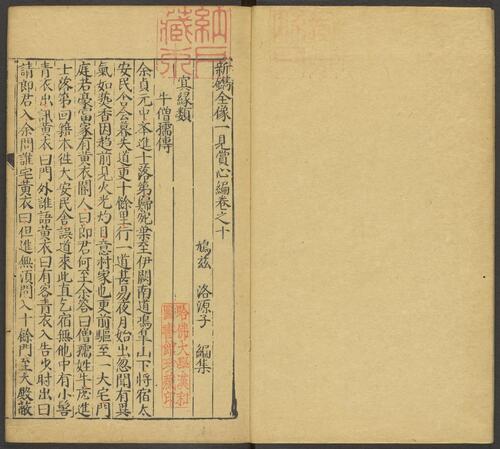 新鐫全像一見賞心編卷之十
鳩茲 洛源子 編集
冥緣類
牛僧孺傳
余貞元中舉進士落第歸宛葉至伊闕南道鳴皐山下將宿大
安民舍會暮失道更十餘里行一道甚易夜月始出忽聞有異
氣如熱香因趨前見火光灼目意村家也更前驅至一大宅門
庭若豪富家有黃衣閽人曰郎君何至余答曰僧孺姓牛應進
士落第回籍本往大安民舍誤道來此直乞宿無他中有小髻
青衣出訊黃衣曰門外誰語黃衣曰有客青衣入告少時出曰
請郎君入余問誰宅黃衣曰但進無須問入十餘門至大殿蔽
哈佛大學漢和
圖書館珍藏印